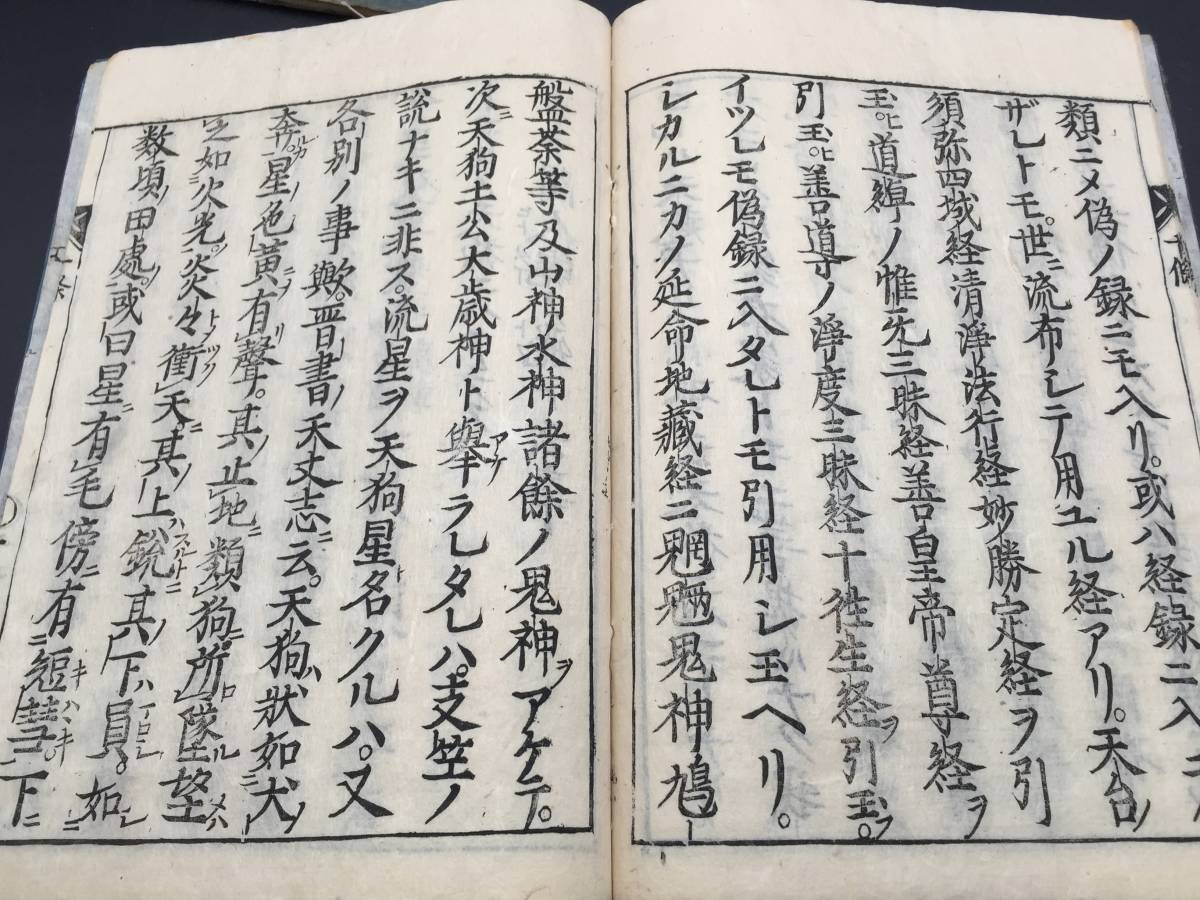 類ニメ偽ノ録ニモ入リ。或ハ経録ニ入
ザレトモ。世ニ流布シテ用ユル経アリ。天台ノ
須弥四域経清淨法行経妙勝定経ヲ引
玉ヒ。道綽ノ惟无三昧経善皇帝尊経ヲ
引玉ヒ。善導ノ淨度三昧経十徃生経ヲ引玉フ。
イツレモ偽録ニ入タレトモ引用シ玉ヘリ。
シカルニカノ延命地藏経ニ魍魎鬼神鳩
盤荼等及山神水神諸餘ノ鬼神ヲアケテ。
次ニ天狗土公大歳神ト擧ラレタレハ。支竺ノ
説ナキニ非ス。流星ヲ天狗星ト名クルハ。又
各別ノ事歟。晋書ノ天文志ニ云。天狗ハ状如犬ノ
奔星ノ色黄ニ有聲。其ノ止地ニ類狗ニ。所墜ル望メハ
之如火光ノ。炎々トノ衝ツク天ニ。其ノ上鋭其ノ下ハ員。如シ
数頃ノ田處ノ。或曰星ニ有毛傍ニ有短彗下ニ